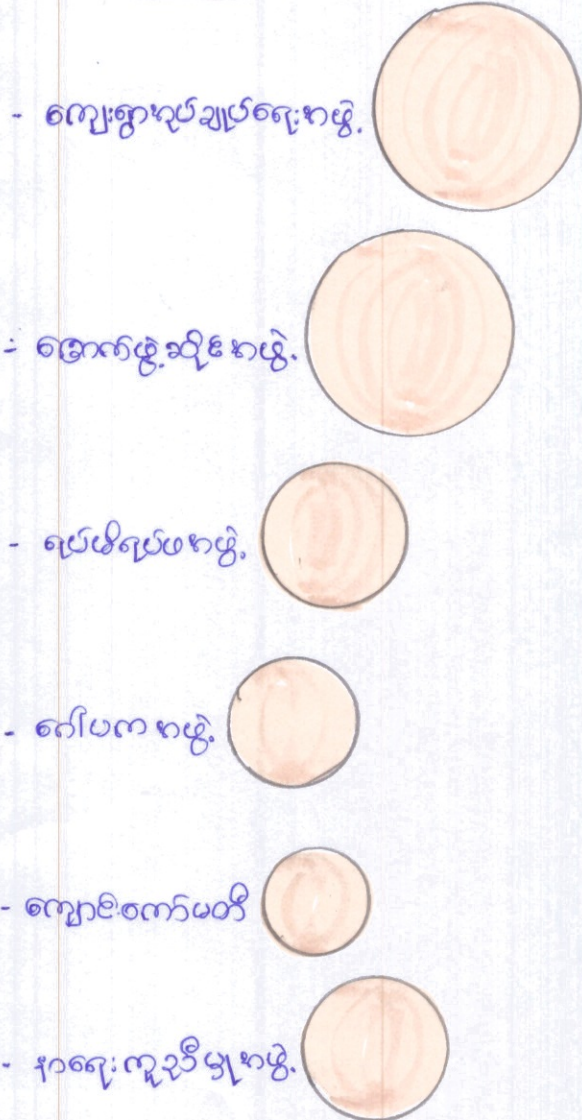 - ကျေးရွာအုပ်ချုပ်ရေးအဖွဲ့
- ခြောက်ဖွဲ့ဆိုင်အဖွဲ့
- ရပ်မိရပ်ဖအဖွဲ့
- ဂေါပကအဖွဲ့
- ကျောင်းကော်မတီ
- နာရေးကူညီမှုအဖွဲ့